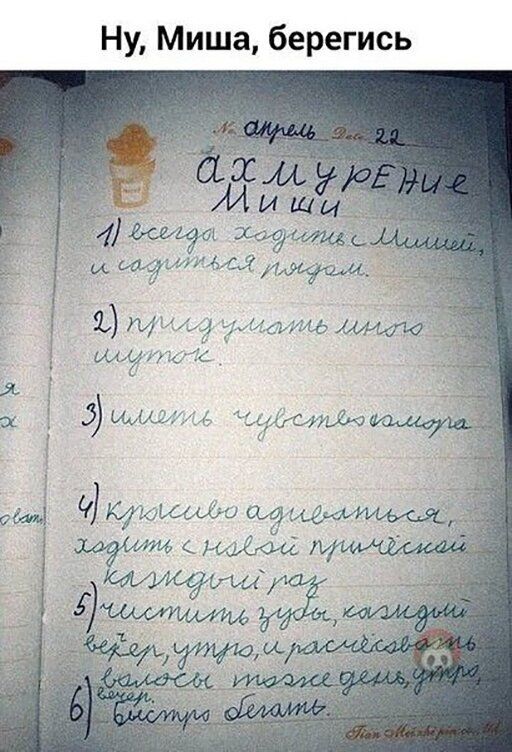 Ну, Миша, берегись
No. апрель Date 22
ахмурЕНие
Миши
1) всегда ходить с Мишей,
и садиться рядом.
2) придумать много
шуток.
3) иметь чувство юмора
4) красиво адиваться,
хадить с новой причёской
каждый раз
5) чистить зубы, каждый
вечер, утро, и расчёсовать
волосы тоже день, утро,
вечер.
6) быстро бегать.
я
х
овать